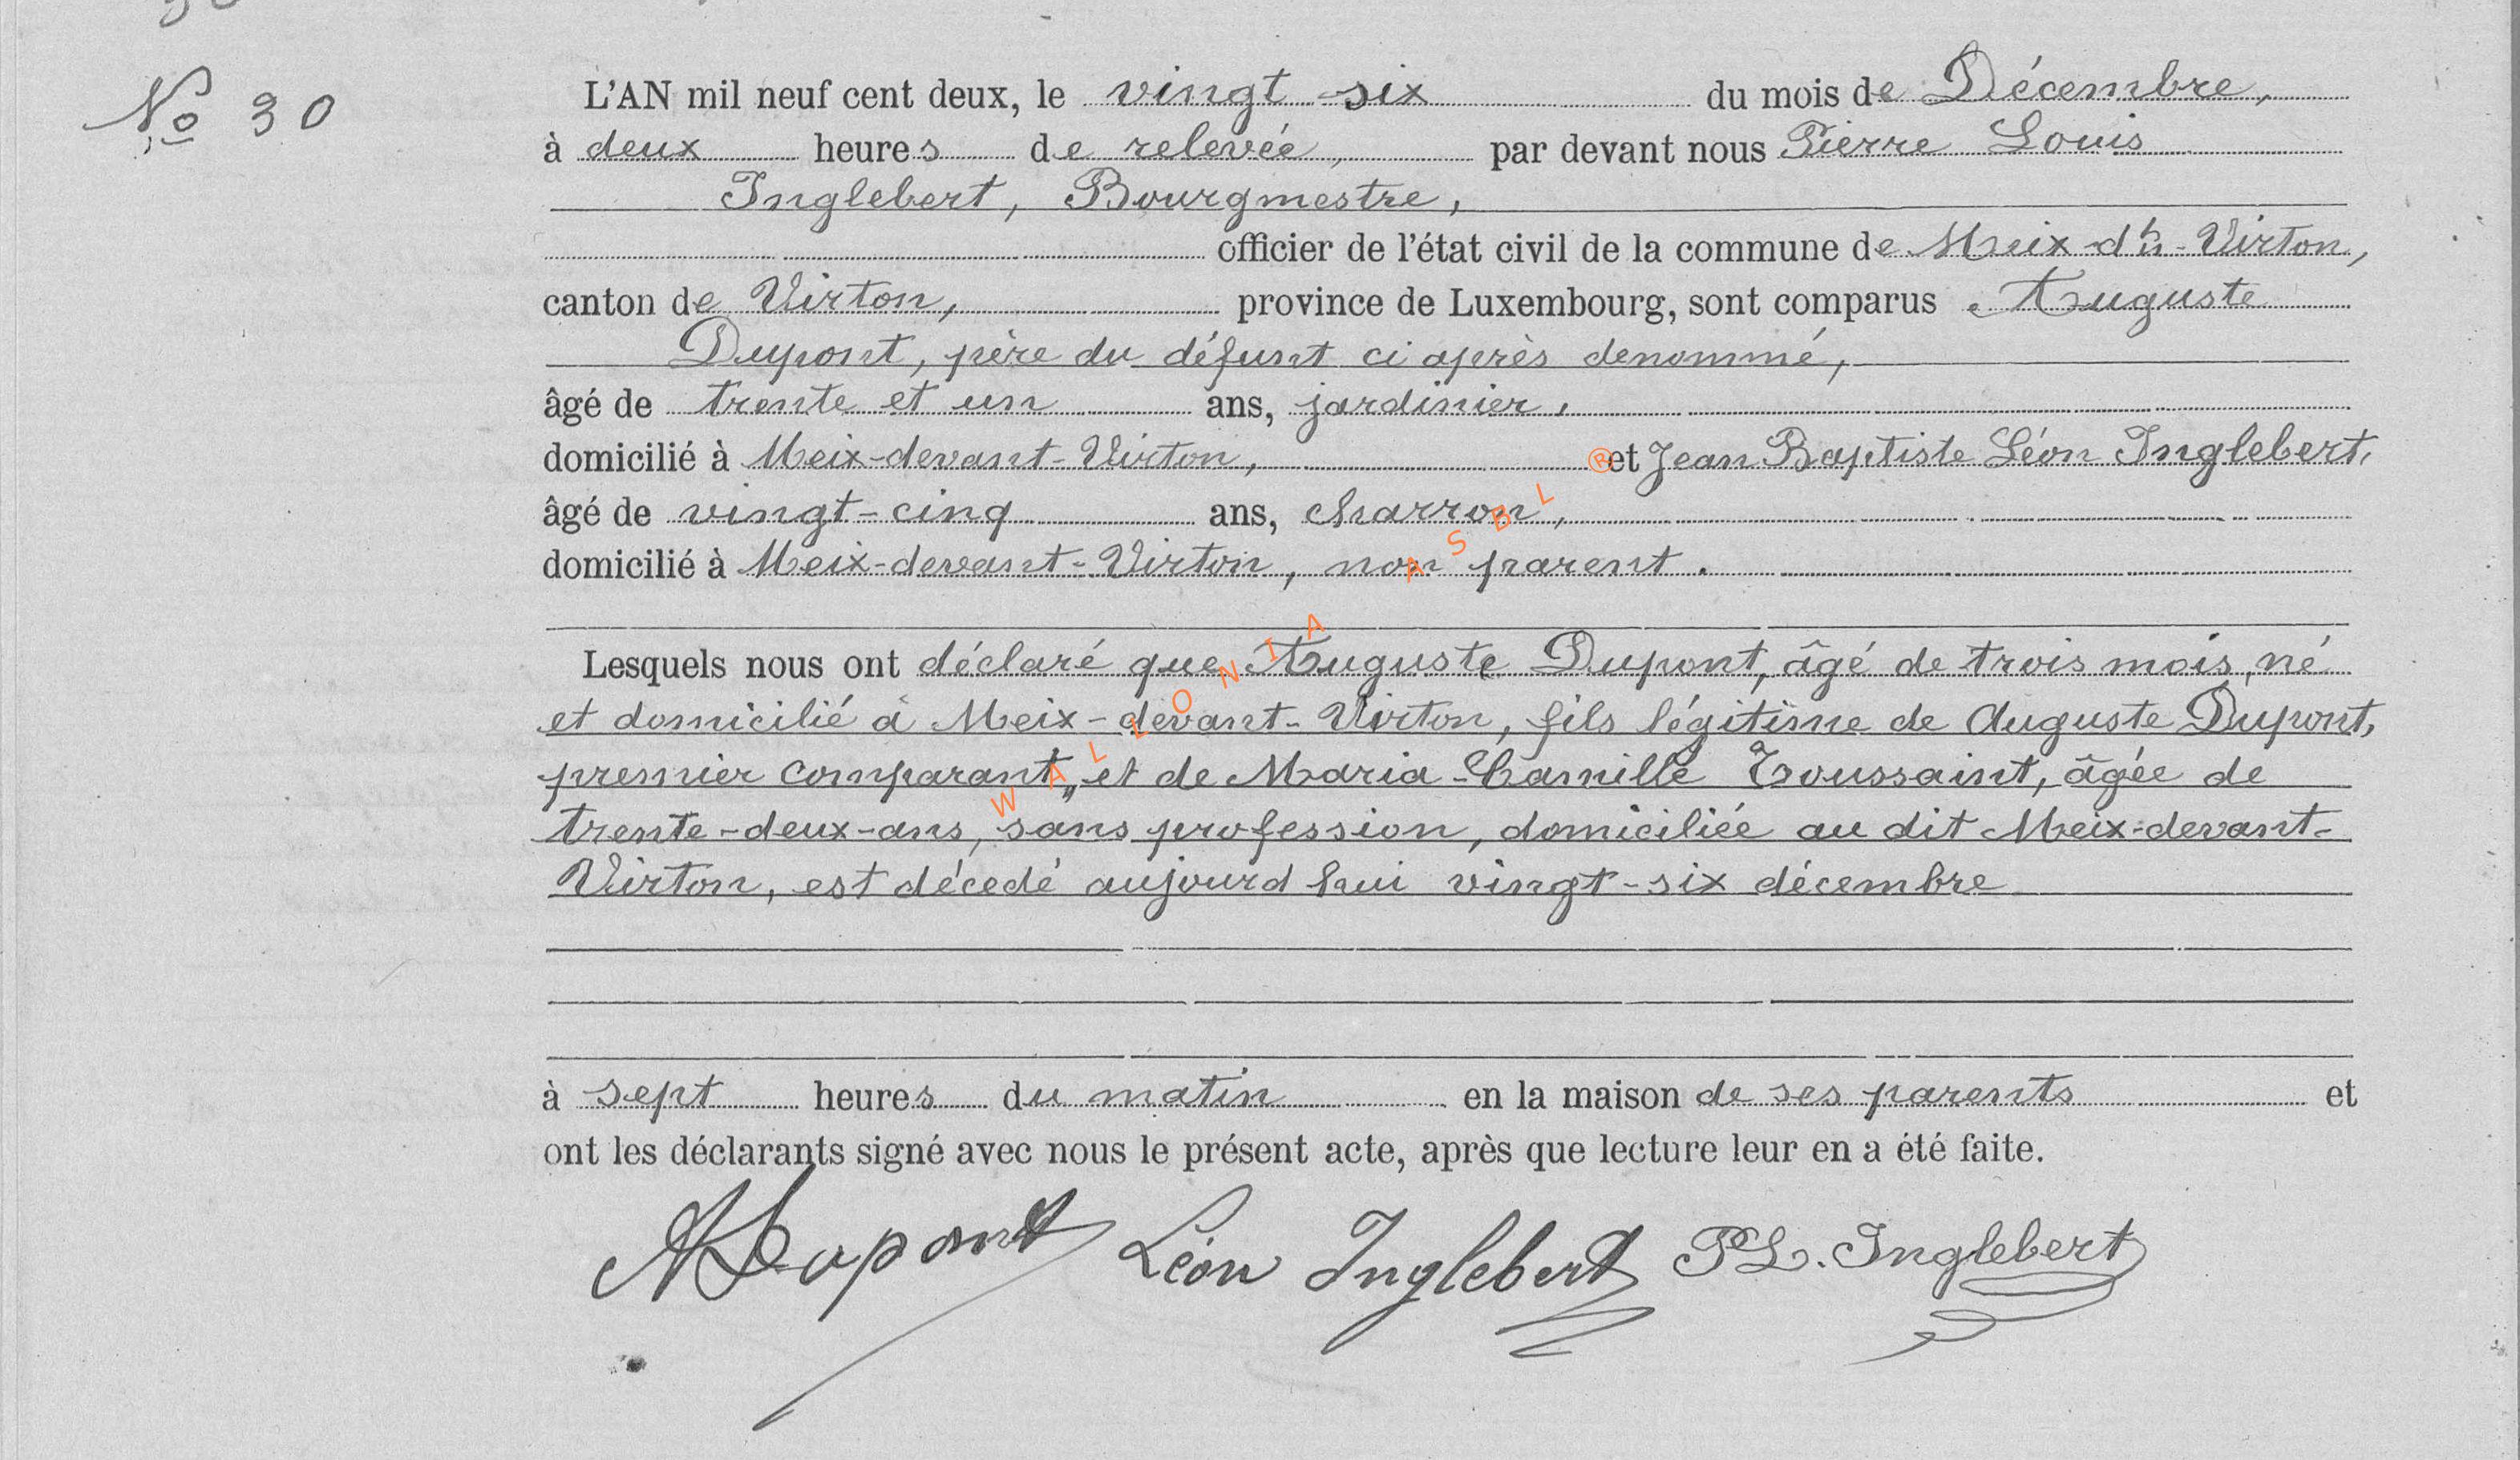 No 30
L'AN mil neuf cent deux, le vingt-six du mois de Décembre,
à deux heures de relevée, par devant nous Pierre Louis
Inglebert, Bourgmestre,
officier de l'état civil de la commune de Meix-dt-Virton,
canton de Virton, province de Luxembourg, sont comparus Auguste
Dupont, père du défunt ci après denommé,
âgé de trente et un ans, jardinier,
domicilié à Meix-devant-Virton, et Jean Baptiste Léon Inglebert,
âgé de vingt-cinq ans, charron,
domicilié à Meix-devant-Virton, non parent.
Lesquels nous ont déclaré que Auguste Dupont, âgé de trois mois, né
et domicilié à Meix-devant-Virton, fils légitime de Auguste Dupont,
premier comparant, et de Maria-Camille Toussaint, âgée de
trente-deux-ans, sans profession, domiciliée au dit Meix-devant-
Virton, est décedé aujourd hui vingt-six décembre
à sept heures du matin en la maison de ses parents et
ont les déclarants signé avec nous le présent acte, après que lecture leur en a été faite.
ADupont Léon Inglebert PL. Inglebert
WALLONIA ASBL ®